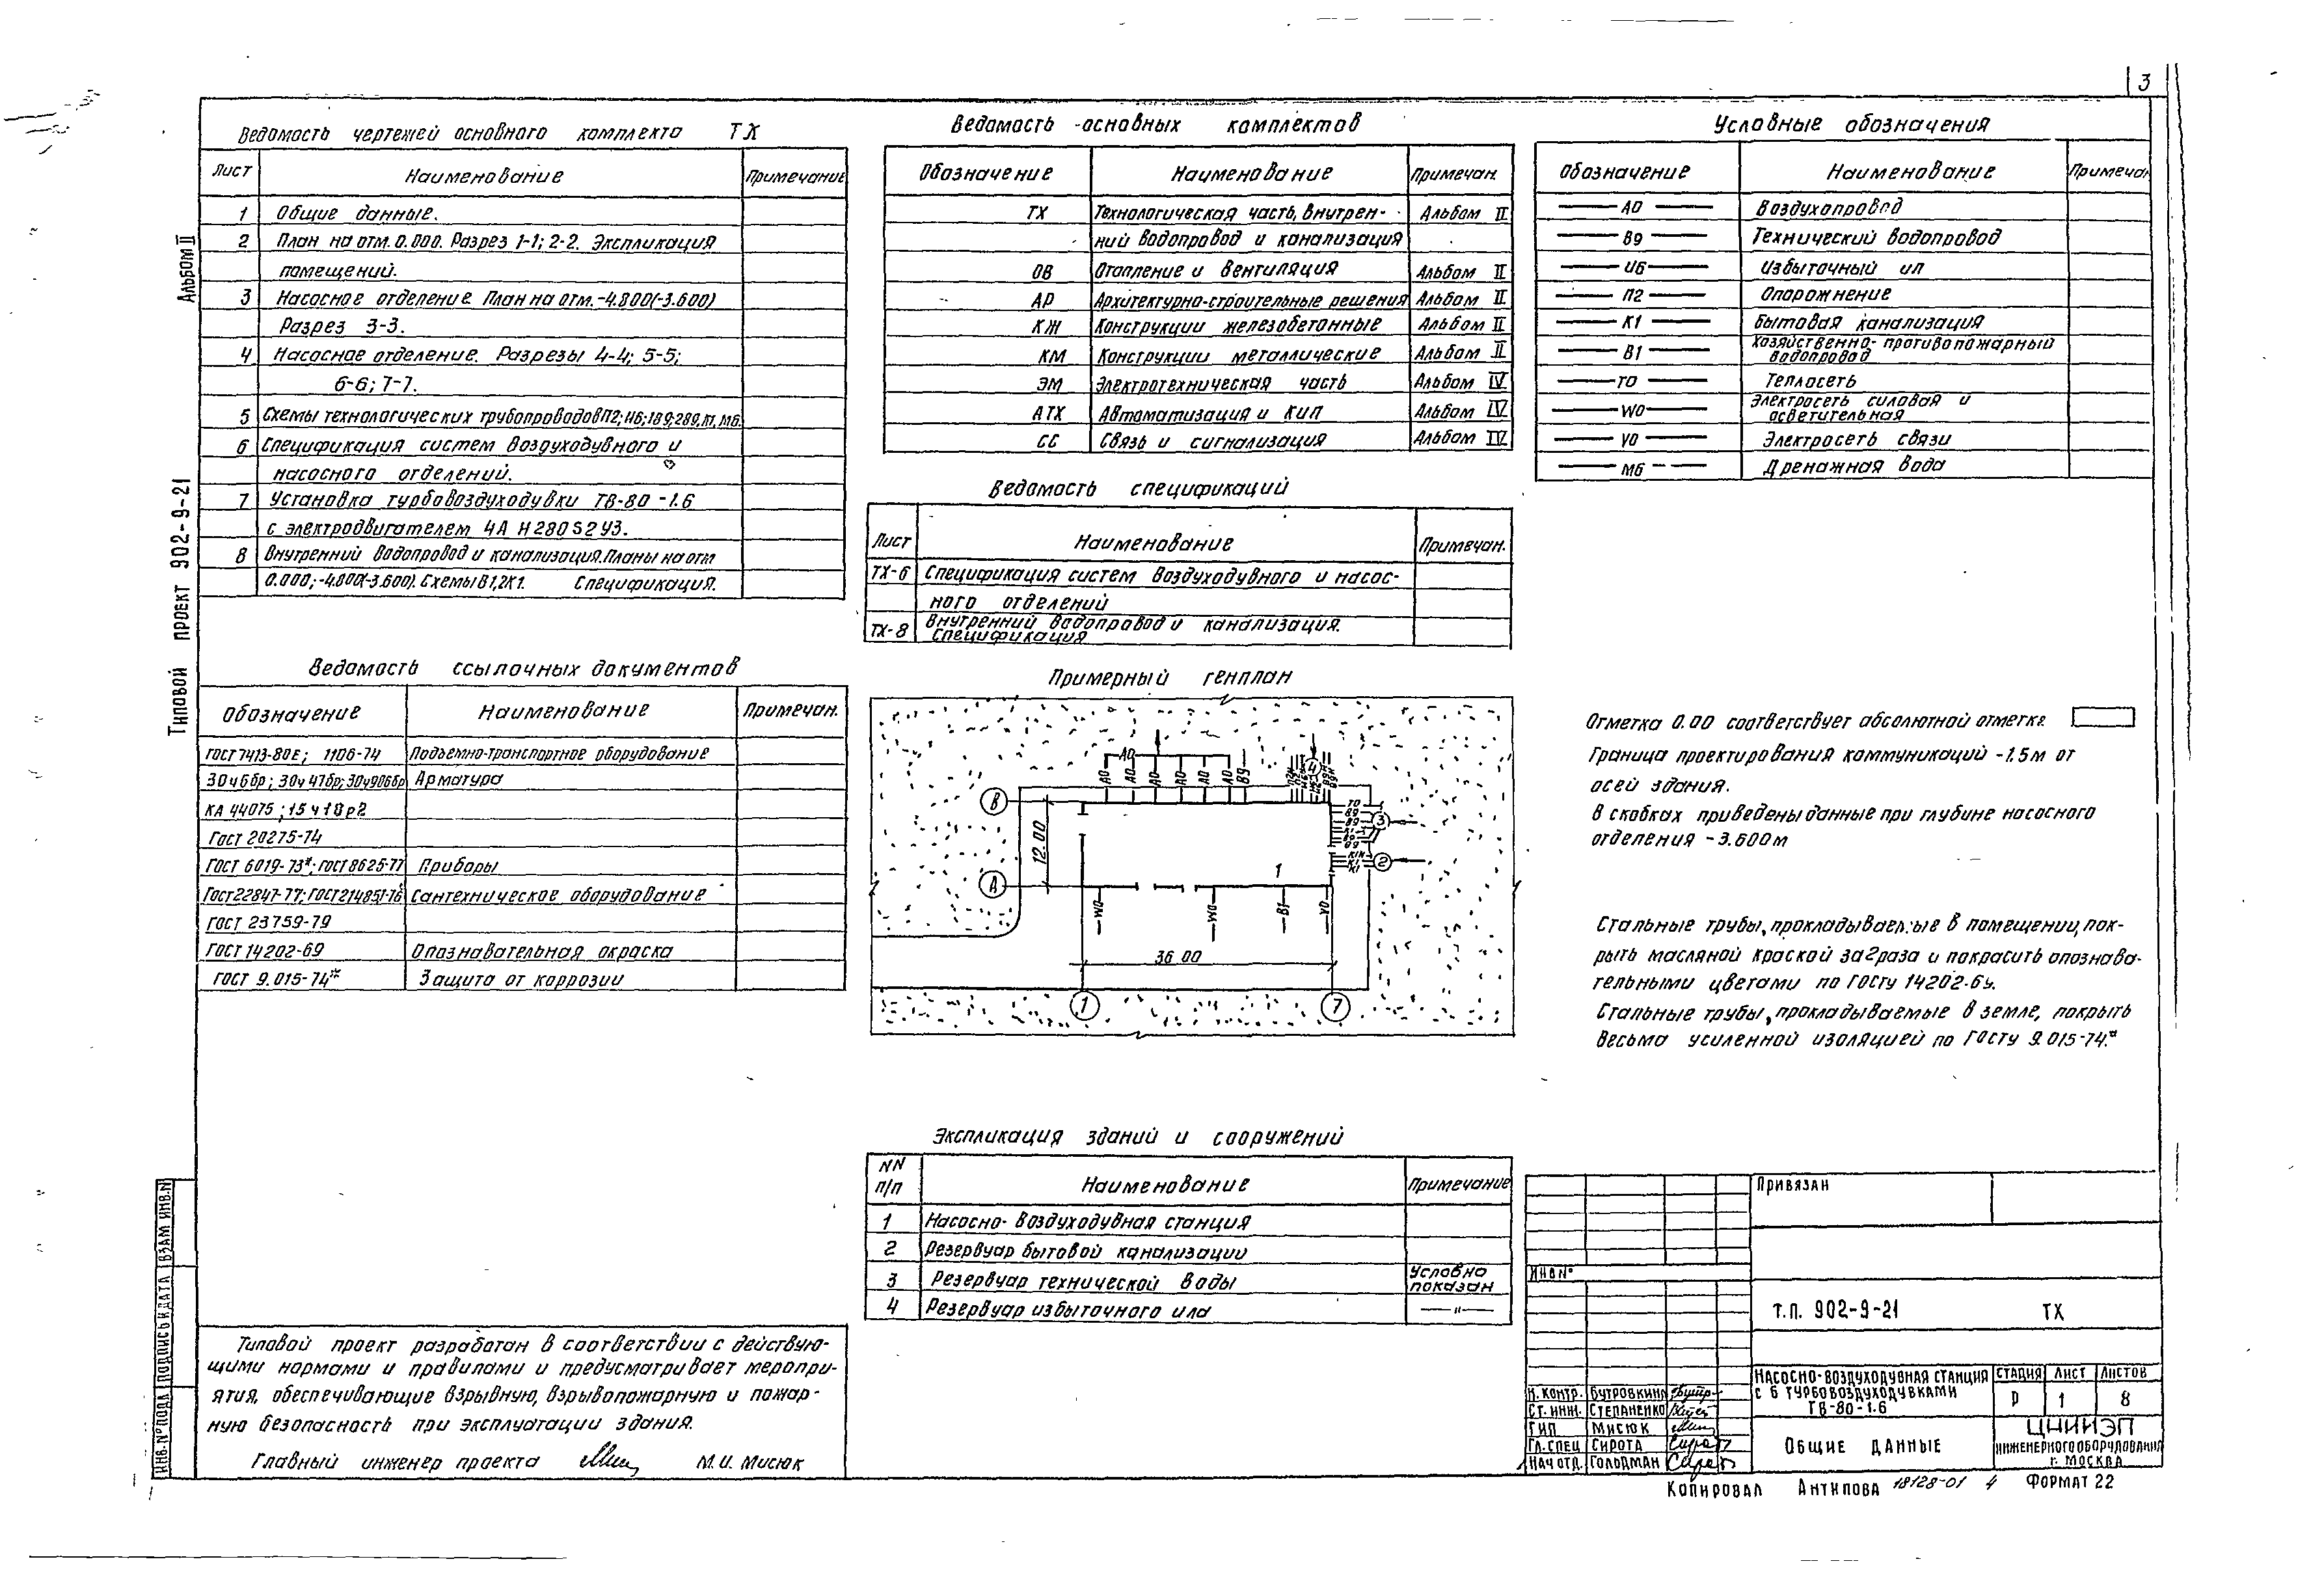 3
Альбом II
Типовой проект 902-9-21
Ведомость чертежей основного комплекта ТХ
Лист Наименование Примечание
1 Общие данные.
2 План на отм. 0.000. Разрез 1-1; 2-2. Экспликация
помещений.
3 Насосное отделение План на отм.-4.800(-3.600)
Разрез 3-3.
4 Насосное отделение. Разрезы 4-4; 5-5;
6-6; 7-7.
5 Схемы технологических трубопроводов П2; И6; 1В9; 2В9, К1, М6.
6 Спецификация систем воздуходувного и
насосного отделений.
7 Установка турбовоздуходувки ТВ-80-1.6
с электродвигателем 4А Н280S2У3.
8 Внутренний водопровод и канализация. Планы на отм
0.000; -4.800(-3.600). Схемы В1, 2К1. Спецификация.
Ведомость ссылочных документов
Обозначение Наименование Примечан.
ГОСТ 7413-80Е; 1106-74 Подъемно-транспортное оборудование
30ч6бр; 30ч47бр; 30ч906бр Арматура
КА 44075; 15ч18р2
ГОСТ 20275-74
ГОСТ 6019-73*; ГОСТ 8625-77 Приборы
ГОСТ 22847-77; ГОСТ 214851-76 Сантехническое оборудование
ГОСТ 23759-79
ГОСТ 14202-69 Опознавательная окраска
ГОСТ 9.015-74* Защита от коррозии
Типовой проект разработан в соответствии с действую-
щими нормами и правилами и предусматривает меропри-
ятия, обеспечивающие взрывную, взрывопожарную и пожар-
ную безопасность при эксплуатации здания.
Главный инженер проекта М.И. Мисюк
Ведомость основных комплектов
Обозначение Наименование Примечан.
ТХ Технологическая часть, внутрен- Альбом II
ний водопровод и канализация
ОВ Отопление и вентиляция Альбом II
АР Архитектурно-строительные решения Альбом II
КЖ Конструкции железобетонные Альбом II
КМ Конструкции металлические Альбом II
ЭМ Электротехническая часть Альбом IV
АТХ Автоматизация и КИП Альбом IV
СС Связь и сигнализация Альбом IV
Ведомость спецификаций
Лист Наименование Примечан.
ТХ-6 Спецификация систем воздуходувного и насос-
ного отделений
ТХ-8 Внутренний водопровод и канализация.
Спецификация
Примерный генплан
А0
А0 А0 А0 А0 А0 А0 В9
4
В
12.00
А
Т0
В9
В9
К1
В9
3
К1
К1
2
1
W0 W0 В1 V0
36 00
1 7
Экспликация зданий и сооружений
NN
п/п Наименование Примечание
1 Насосно-воздуходувная станция
2 Резервуар бытовой канализации
3 Резервуар технической воды Условно
показан
4 Резервуар избыточного ила —"—
Условные обозначения
Обозначение Наименование Примечан
А0 Воздухопровод
В9 Технический водопровод
И6 Избыточный ил
П2 Опорожнение
К1 Бытовая канализация
В1 Хозяйственно-противопожарный
водопровод
Т0 Теплосеть
W0 Электросеть силовая и
осветительная
V0 Электросеть связи
М6 Дренажная вода
Отметка 0.00 соответствует абсолютной отметке
Граница проектирования коммуникаций -1.5м от
осей здания.
В скобках приведены данные при глубине насосного
отделения -3.600м
Стальные трубы, прокладываемые в помещении, пок-
рыть масляной краской за 2 раза и покрасить опознава-
тельными цветами по ГОСТу 14202-69.
Стальные трубы, прокладываемые в земле, покрыть
весьма усиленной изоляцией по ГОСТу 9.015-74*
Привязан
Инв N°
Т.П. 902-9-21 ТХ
Н. контр. Бутровкина
Ст. инж. Степаненко
ГИП Мисюк
Гл. спец Сирота
Нач отд. Голодман
Насосно-воздуходувная станция
с 6 турбовоздуходувками
ТВ-80-1.6
Стадия Лист Листов
Р 1 8
Общие данные
ЦНИИЭП
инженерного оборудования
г. Москва
Инв. N° подл. Подпись и дата Взам инв. N
Копировал Антипова 18128-01 4 Формат 22